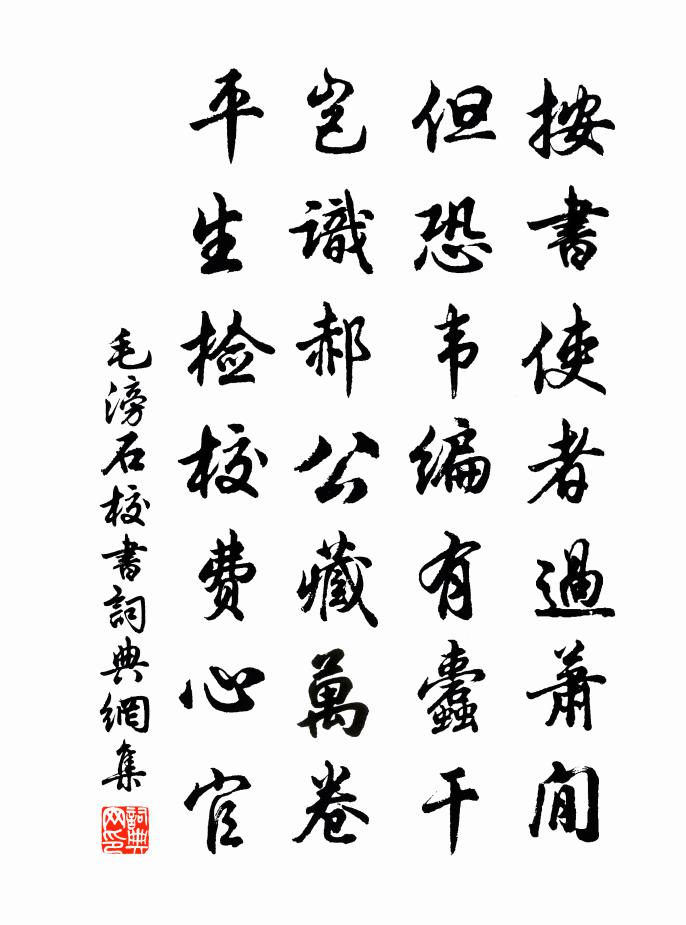 按書使者過蕭閒
但恐韦编有蠹干
岂識郝公藏萬卷
平生检校费心官
毛滂石校書詞典網集
詞典网印